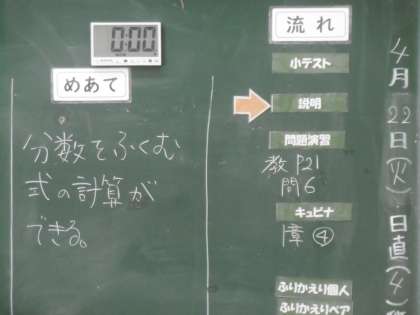 0:00
めあて
分数をふくむ
式の計算が
できる。
流れ
小テスト
説明
問題演習
教 P21
問6
キュビナ
章④
ふりかえり個人
ふりかえりペア
4月22日(火)日直(4)